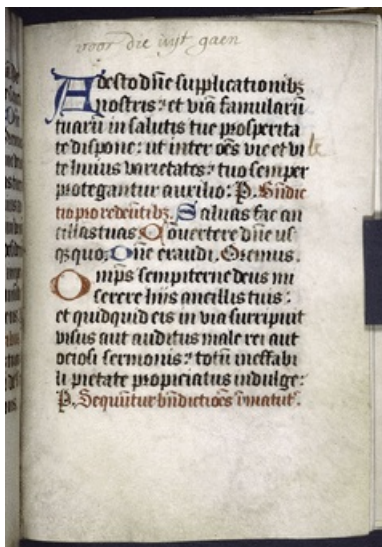 voor die uyt gaen
Adesto dn̄e supplicationibꝫ
nostris: et viā famularū
tuarū in salutis tue prosperita
te dispone: ut inter oēs vie et vi
te huius varietates: tuo semper
protegantur auxilio: P. Bn̄dic
tio pro redeūtibꝫ. Saluas fac an
cillas tuas. Convertere dn̄e us
qꝫ quo. Dn̄e exaudi. Oremus.
Omp̄s sempiterne deus mi
serere hiis ancillis tuis:
et quidquid eis in via surripuit
visus aut auditus male rei aut
ociosi sermonis: totū ineffabi
li pietate propiciatus indulge:
P. Sequūtur bn̄dictiōēs